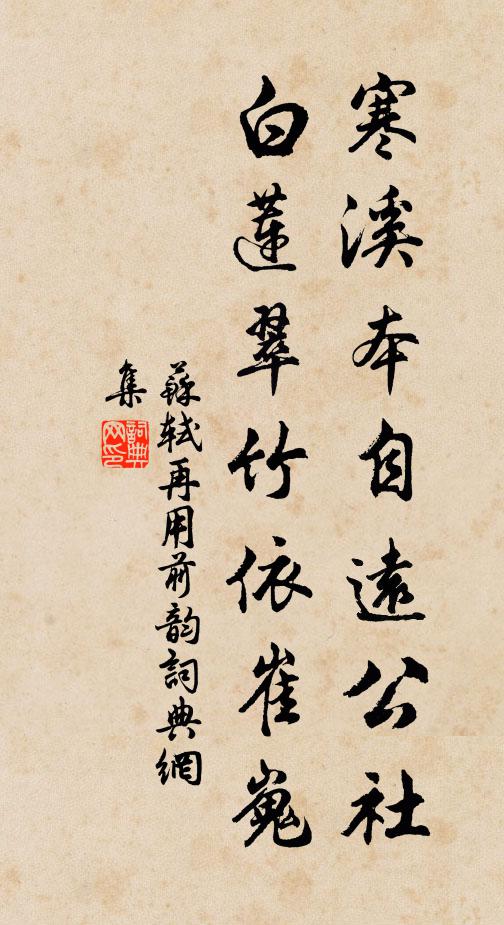 寒溪本自遠公社
白蓮翠竹依崔嵬
蘇軾再用前韵詞典網
集
詞典
网印